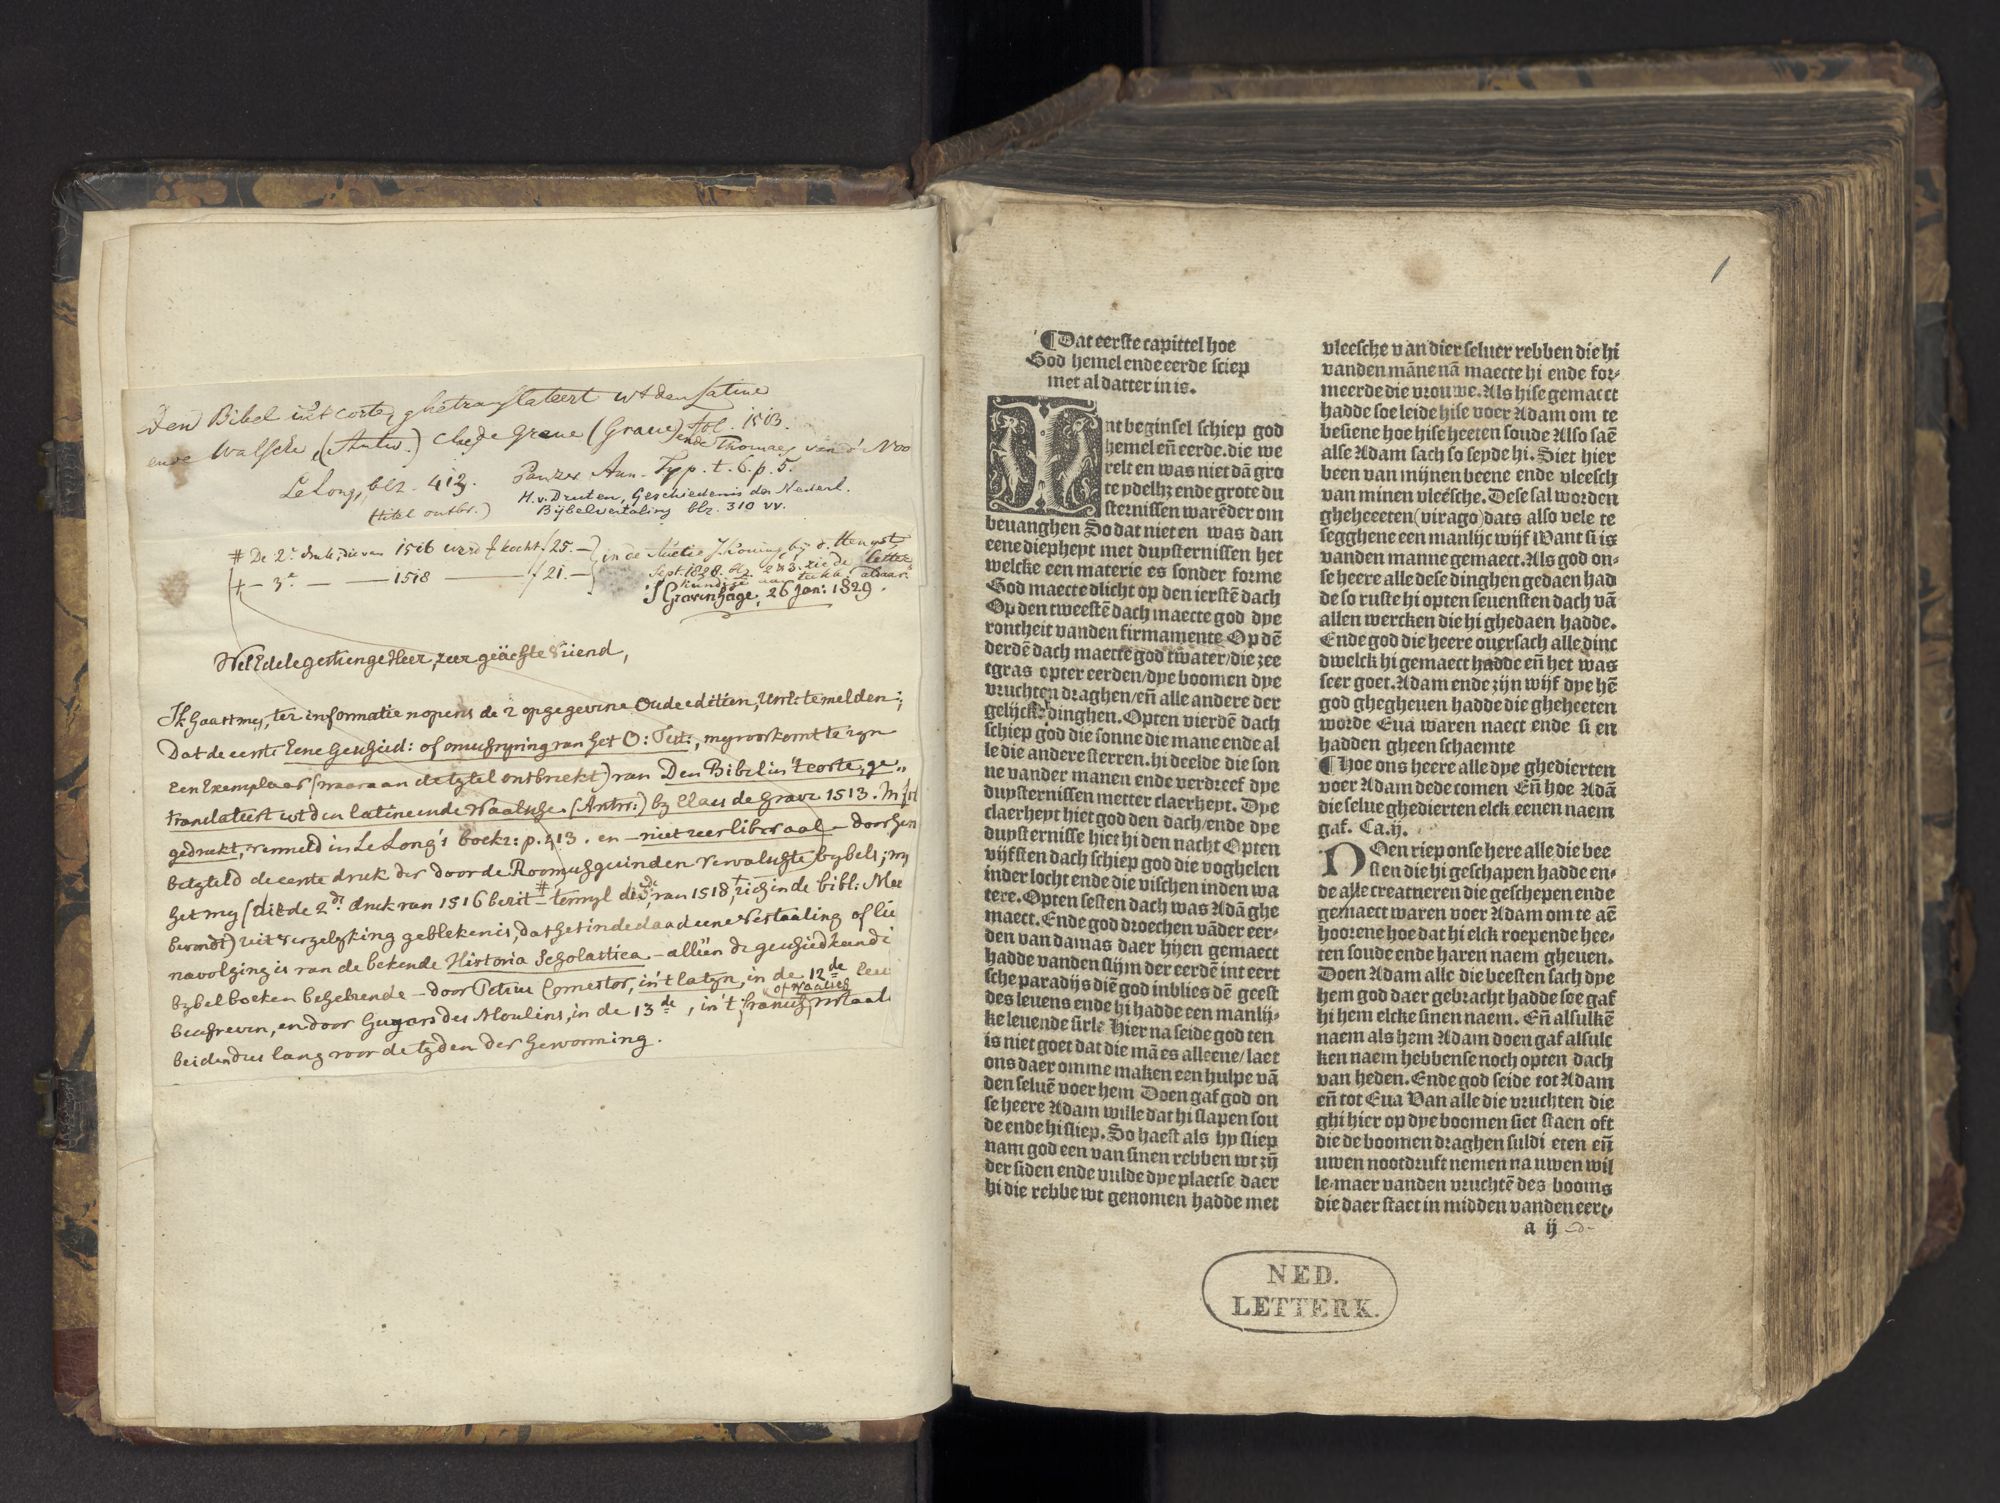 Den Bibel int corte, ghetranslateert wt den Latine
ende Walsche, (Antw.) Claes de Graue (Graue) fol. 1513.
ende Thomas van d' Noo
Le Long, blz. 413. Panzer Ann. Typ. t. 6. p. 5.
(titel ontbr.) H. v. Druten, Geschiedenis der Nederl.
Bijbelvertaling blz. 310 vv.
# De 2e druk, die van 1516 werd verkocht f 25.—
+ — 3e — 1518 — f 21.—
in de Auctie J. Koning, bij d. Hengst,
Sept. 1828. blz. 2 & 3. zie de letter
kundige aldaar.
'S Gravenhage, 26 Jan: 1829.
WelEdelegestrenge Heer, zeer geächte Vriend,
Ik haast mij, ter informatie nopens de 2 opgegevene Oude editien, U mt: te melden;
Dat de eerste Eene Geschied: of omschryving van het O: Test:, my voorkomt te zyn
Een Exemplaar (waaraan de tytel ontbreekt) van Den Bibel in 't corte, ge„
translateert wt den latine ende Waalsche. (Antw:) by Claes de Grave 1513. in fol
gedrukt, vermeld in Le Long's boekz: p. 413. en — niet zeer liberaal — door hem
betyteld de eerste druk der door de Roomschgezinden vervalschte bybels; my
het my (die de 2de druk van 1516 bezit # terwyl de 3de, van 1518, + zich in de bibl: Mee
bevondt) uit vergelyking gebleken is, dat het inderdaad eene vertaaling of lie
navolging is van de bekende Historia Scholastica — alleen de geschiedkundi
bybelboeken behelzende — door Petrus Comestor, in 't latyn, in de 12de Eeu
beschreven, en door Guyars des Moulins, in de 13de, in 't fransch of Waalsch vertaald
beiden dus lang voor de tyden der Hervorming.
1
¶ Dat eerste capittel hoe
God hemel ende eerde sciep
met al datter in is.
INt beginsel schiep god
hemel eñ eerde. die we
relt en was niet dā gro
te ydelhz ende grote du
sternissen warēder om
beuanghen So dat niet en was dan
eene diepheyt met duysternissen het
welcke een materie es sonder forme
God maecte dlicht op den ierstē dach
Op den tweestē dach maecte god dye
rontheit vanden firmamente Op dē
derdē dach maecte god twater/die zee
tgras opter eerden/dye boomen dye
vruchten draghen/eñ alle andere der
gelijcke dinghen. Opten vierdē dach
schiep god die sonne die mane ende al
le die andere sterren. hi deelde die son
ne vander manen ende verdreef dye
duysternissen metter claerheyt. Dye
claerheyt hiet god den dach/ende dye
duysternisse hiet hi den nacht Opten
vijfsten dach schiep god die voghelen
inder locht ende die vischen inden wa
tere. Opten sesten dach was Adā ghe
maect. Ende god droechen vāder eer-
den van damas daer hijen gemaect
hadde vanden slijm der eerdē int eert
sche paradijs diē god inblies dē geest
des leuens ende hi hadde een manlij-
ke leuende siele Hier na seide god ten
is niet goet dat die mā es alleene/laet
ons daer omme maken een hulpe vā
den seluē voer hem Doen gaf god on
se heere Adam wille dat hi slapen sou
de ende hi sliep. So haest als hy sliep
nam god een van sinen rebben wt zijn
der siden ende vulde dye plaetse daer
hi die rebbe wt genomen hadde met
vleesche van dier seluer rebben die hi
vanden māne nā maecte hi ende for-
meerde die vrouwe. Als hise gemaect
hadde soe leide hise voer Adam om te
besiene hoe hise heeten soude Also saē
alse Adam sach so seyde hi. Siet hier
been van mijnen beene ende vleesch
van minen vleesche. Dese sal worden
gheheeten (virago) dats also vele te
segghene een manlijc wijf Want si is
vanden manne gemaect. Als god on-
se heere alle dese dinghen gedaen had
de so ruste hi opten seuensten dach vā
allen wercken die hi ghedaen hadde.
Ende god die heere ouersach alle dinc
dwelck hi gemaect hadde eñ het was
seer goet. Adam ende zijn wijf dye hē
god ghegheuen hadde die gheheeten
worde Eua waren naect ende si en
hadden gheen schaemte
¶ Hoe ons heere alle dye ghedierten
voer Adam dede comen Eñ hoe Adā
die selue ghedierten elck eenen naem
gaf. Ca. ij.
DOen riep onse here alle die bee
sten die hi geschapen hadde en-
de alle creatueren die geschepen ende
gemaect waren voer Adam om te aē
hoorene hoe dat hi elck roepende hee-
ten soude ende haren naem gheuen.
Doen Adam alle die beesten sach dye
hem god daer gebracht hadde soe gaf
hi hem elcke sinen naem. Eñ alsulkē
naem als hem Adam doen gaf alsulc
ken naem hebbense noch opten dach
van heden. Ende god seide tot Adam
eñ tot Eua Van alle die vruchten die
ghi hier op dye boomen siet staen oft
die de boomen draghen suldi eten eñ
uwen nootdruft nemen na uwen wil
le. maer vanden vruchtē des booms
die daer staet in midden vanden eert-
a ij
NED.
LETTERK.